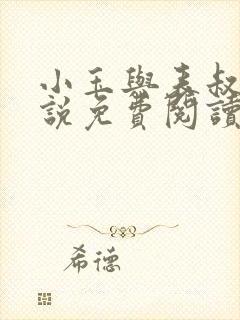 小玉與表叔
說免費閱讀
希德